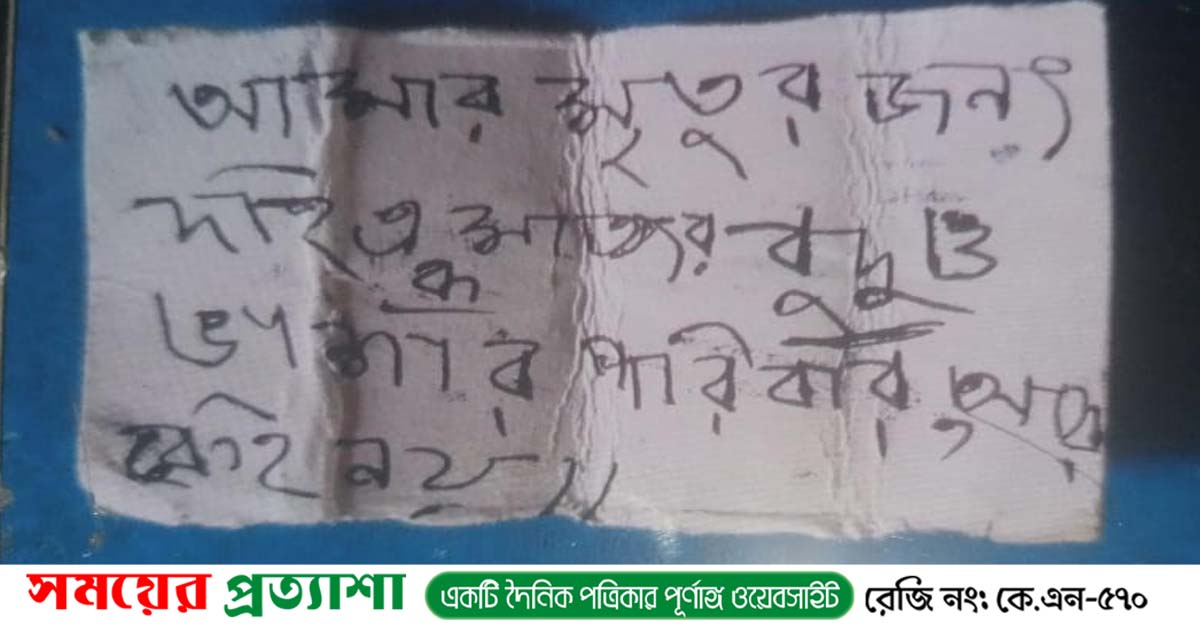 আমার মৃতুর জন্য
দাই এক মাত্র বুদু ও
ভাশার পরিবার, আর
কেই নয় ॥
সময়ের প্রত্যাশা একটি দৈনিক পত্রিকার পূর্ণাঙ্গ ওয়েবসাইট রেজি নং: কে.এন-৫৭০